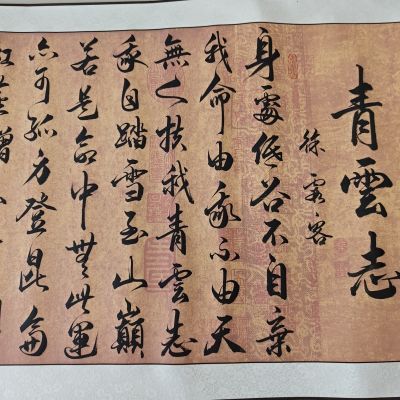 青雲志
徐霞客
身處低谷不自棄
我命由我不由天
無人扶我青雲志
我自踏雪至山巔
若是命中無此運
亦可孤方登昆侖
紅塵贈